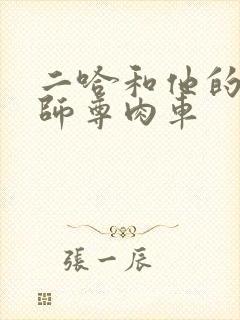 二哈和他的
師尊肉車
張一辰